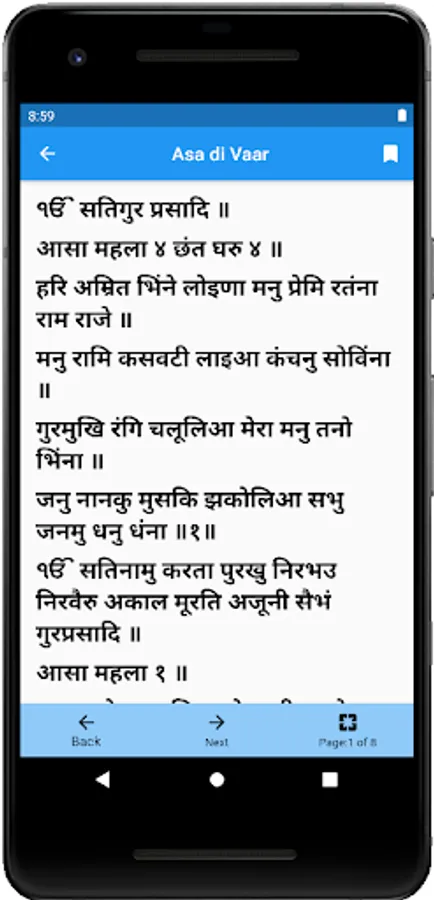 8:59
Asa di Vaar
ੴ सतिगुर प्रसादि ॥
आसा महला ४ छंत घरु ४ ॥
हरि अम्रित भिंने लोइणा मनु प्रेमि रतंना
राम राजे ॥
मनु रामि कसवटी लाइआ कंचनु सोविंना
॥
गुरमुखि रंगि चलूलिआ मेरा मनु तनो
भिंना ॥
जनु नानकु मुसकि झकोलिआ सभु
जनमु धनु धंना ॥१॥
ੴ सतिनामु करता पुरखु निरभउ
निरवैरु अकाल मूरति अजूनी सैभं
गुरप्रसादि ॥
आसा महला १ ॥
Back
Next
Page:1 of 8